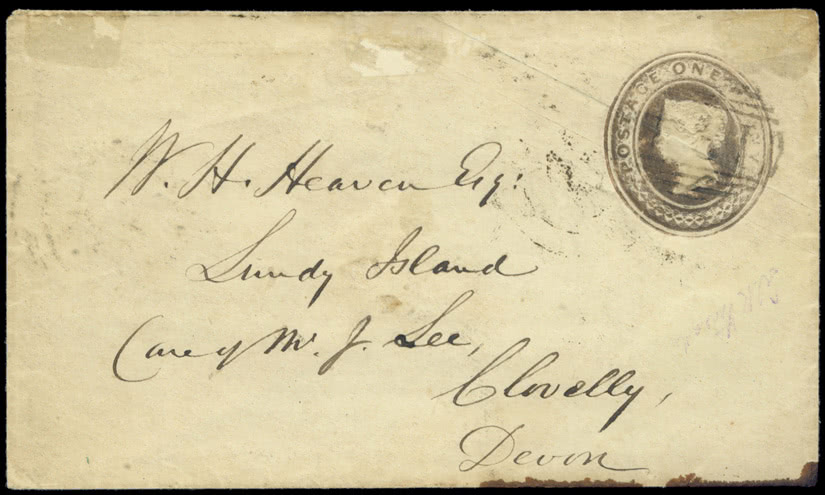 POSTAGE ONE
W. H. Heaven Esq:
Lundy Island
Care of Mr. J. Lee,
Clovelly,
Devon